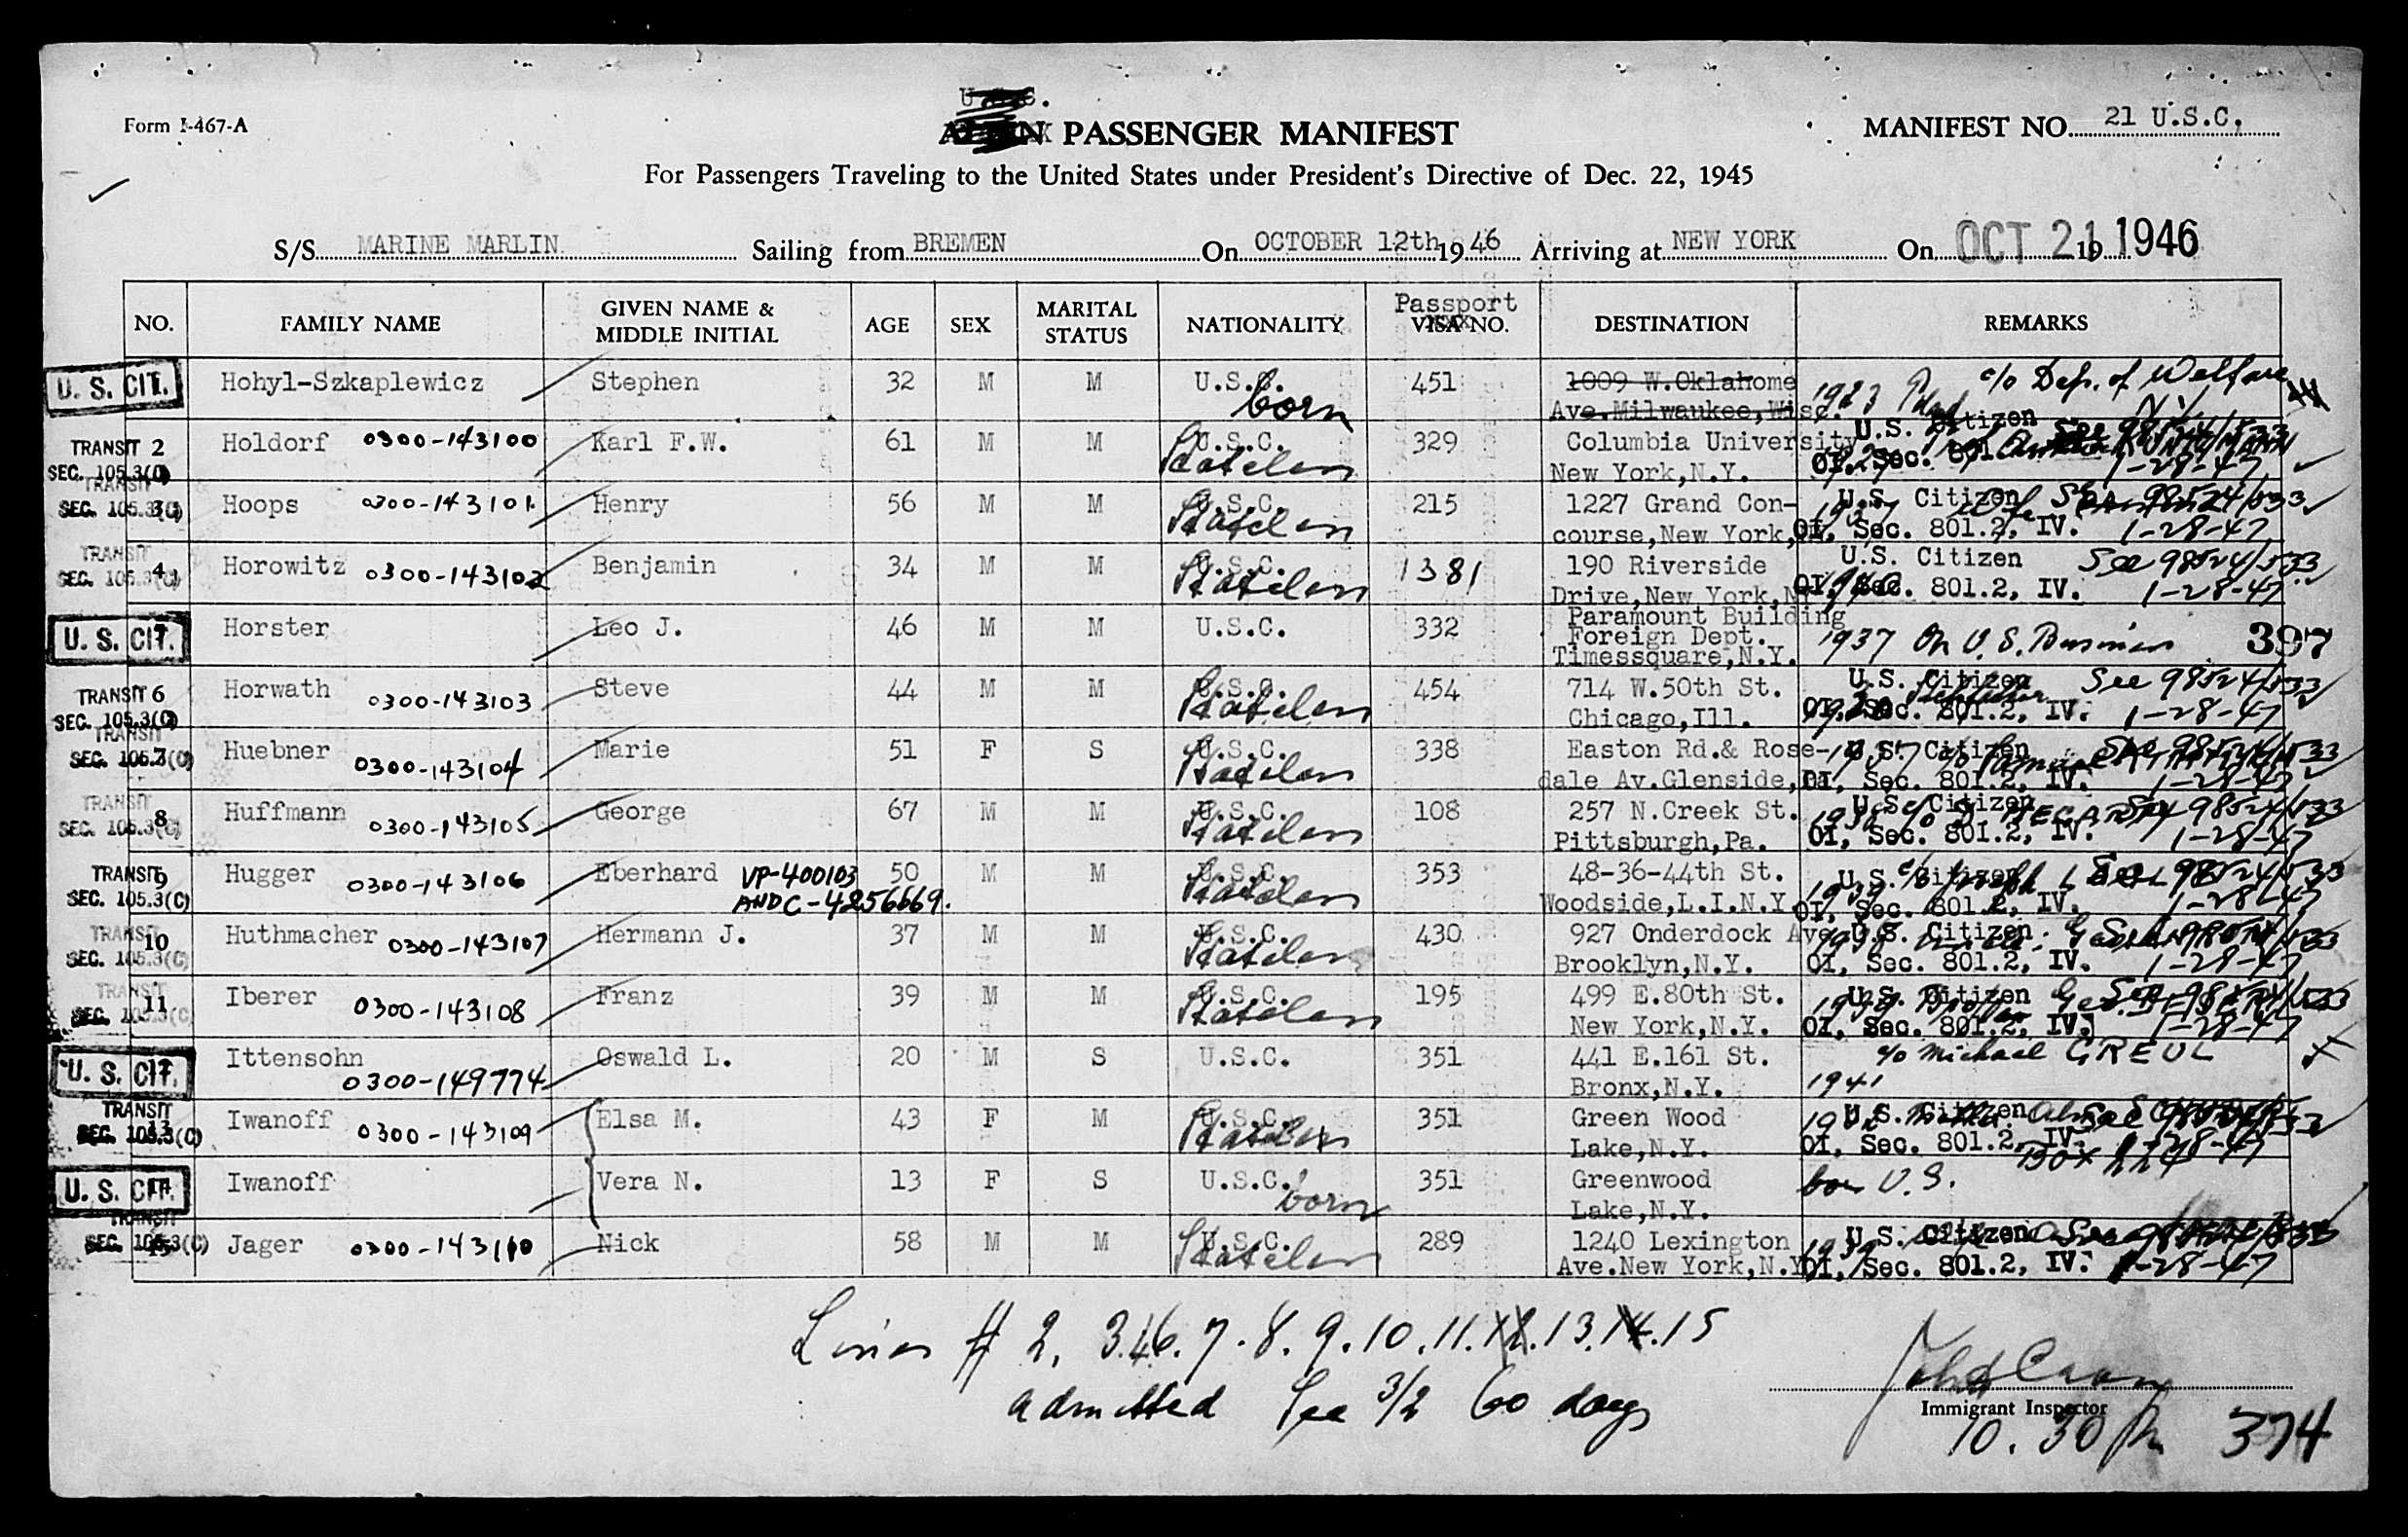 U.S.C.
Form I-467-A
ALIEN PASSENGER MANIFEST
MANIFEST NO. 21 U.S.C.
For Passengers Traveling to the United States under President's Directive of Dec. 22, 1945
S/S MARINE MARLIN Sailing from BREMEN On OCTOBER 12th 19 46 Arriving at NEW YORK On OCT 21 19 1946
NO. FAMILY NAME GIVEN NAME & MIDDLE INITIAL AGE SEX MARITAL STATUS NATIONALITY Passport VISA NO. DESTINATION REMARKS
U. S. CIT. 1 Hohyl-Szkaplewicz Stephen 32 M M U.S.C. born 451 1009 W.Oklahome 1923 c/o Dep. of Welfare
Ave.Milwaukee,Wisc. N.Y.
TRANSIT 2 Holdorf 0300-143100 Karl F.W. 61 M M U.S.C. 329 Columbia University U.S. Citizen See 98524/533
SEC. 105.3(C) New York,N.Y. OI, Sec. 801.2, IV. 1-28-47
TRANSIT 3 Hoops 0300-143101 Henry 56 M M U.S.C. 215 1227 Grand Con- U.S. Citizen See 98524/533
SEC. 105.3(C) course,New York, OI, Sec. 801.2, IV. 1-28-47
TRANSIT 4 Horowitz 0300-143102 Benjamin 34 M M U.S.C. 1381 190 Riverside U.S. Citizen See 98524/533
SEC. 105.3(C) Drive,New York,NY OI, Sec. 801.2, IV. 1-28-47
U. S. CIT. Horster Leo J. 46 M M U.S.C. 332 Paramount Building
Foreign Dept. 1937 On U.S. Business 397
Timessquare,N.Y.
TRANSIT 6 Horwath 0300-143103 Steve 44 M M U.S.C. 454 714 W.50th St. U.S. Citizen See 98524/533
SEC. 105.3(C) Chicago,Ill. OI, Sec. 801.2, IV. 1-28-47
TRANSIT 7 Huebner 0300-143104 Marie 51 F S U.S.C. 338 Easton Rd.& Rose- 1937 U.S. Citizen See 98524/533
SEC. 105.3(C) dale Av.Glenside,Pa. OI, Sec. 801.2, IV. 1-28-47
TRANSIT 8 Huffmann 0300-143105 George 67 M M U.S.C. 108 257 N.Creek St. U.S. Citizen See 98524/533
SEC. 105.3(C) Pittsburgh,Pa. OI, Sec. 801.2, IV. 1-28-47
TRANSIT 9 Hugger 0300-143106 Eberhard VP-400103 50 M M U.S.C. 353 48-36-44th St. U.S. Citizen See 98524/533
SEC. 105.3(C) AND C-4256669. Woodside,L.I.N.Y. OI, Sec. 801.2, IV. 1-28-47
TRANSIT 10 Huthmacher 0300-143107 Hermann J. 37 M M U.S.C. 430 927 Onderdock Ave U.S. Citizen See 98524/533
SEC. 105.3(C) Brooklyn,N.Y. OI, Sec. 801.2, IV. 1-28-47
TRANSIT 11 Iberer 0300-143108 Franz 39 M M U.S.C. 195 499 E.80th St. U.S. Citizen See 98524/533
SEC. 105.3(C) New York,N.Y. OI, Sec. 801.2, IV. 1-28-47
U. S. CIT. Ittensohn 0300-149774 Oswald L. 20 M S U.S.C. 351 441 E.161 St. c/o Michael GREUL
Bronx,N.Y. 1941
TRANSIT 13 Iwanoff 0300-143109 Elsa M. 43 F M U.S.C. 351 Green Wood U.S. Citizen See 98524/533
SEC. 105.3(C) Lake,N.Y. OI, Sec. 801.2, IV. 1-28-47
U. S. CIT. Iwanoff Vera N. 13 F S U.S.C. born 351 Greenwood born U.S.
Lake,N.Y.
TRANSIT 15 Jager 0300-143110 Nick 58 M M U.S.C. 289 1240 Lexington U.S. Citizen
SEC. 105.3(C) Ave.New York,N.Y. OI, Sec. 801.2, IV. 1-28-47
Lines # 2. 3.4.6. 7. 8. 9. 10. 11. 12. 13. 14. 15
admitted Sec 3/2 60 days
Immigrant Inspector
10.30 374